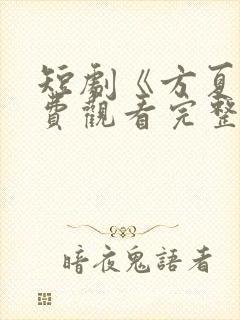 短劇《方夏
費觀看完整
暗夜鬼語者